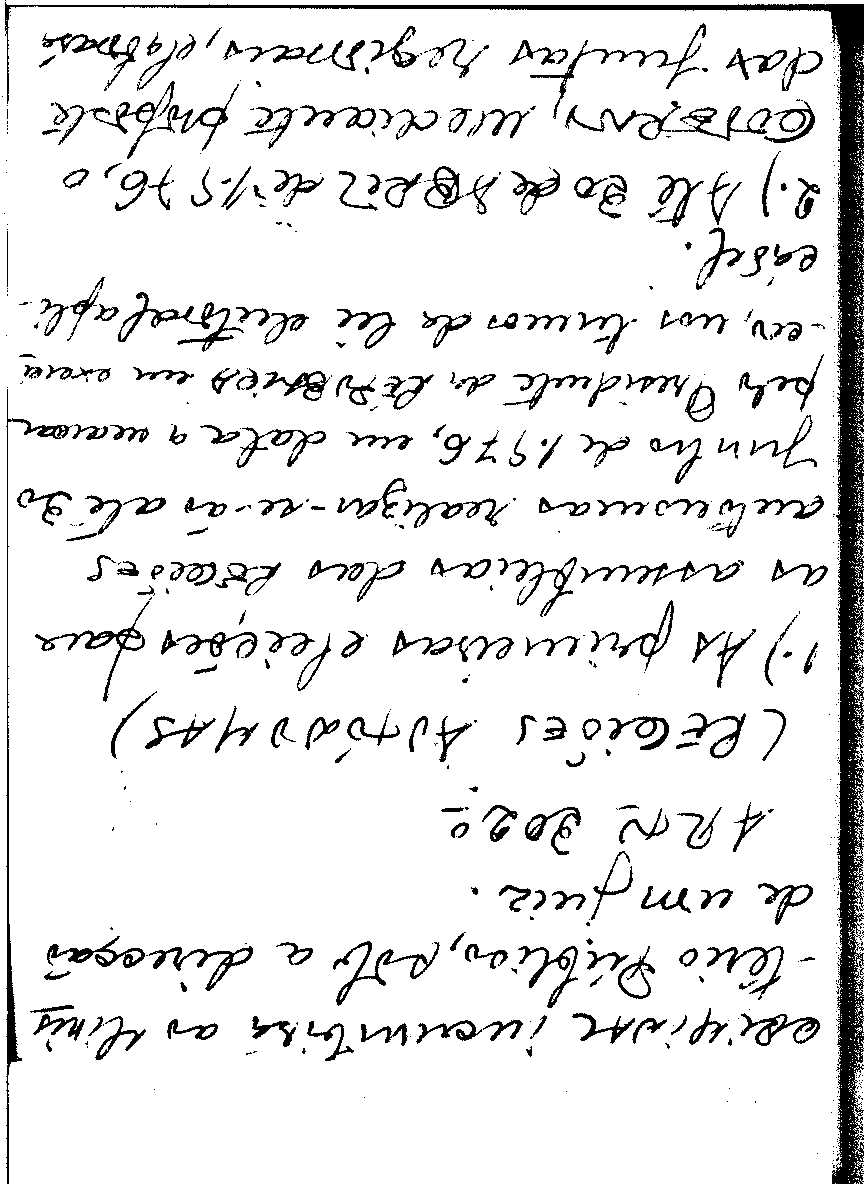 CRIMINAL incumbirá ao Minis
-tério Público, sob a direcção
de um juiz.
ART 302º
(REGIÕES AUTÓNOMAS)
1.) As primeiras eleições para
as assembleias das REGIÕES
autónomas realizar-se-ão até 30
Junho de 1.976, em data a marcar
pelo Presidente da REPÚBLICA em exercí
-cio, nos termos da lei eleitoral apli-
cável.
2.) Até 30 de ABRIL de 1.976, o
GOVERNO, mediante proposta
das juntas regionais, elaborará